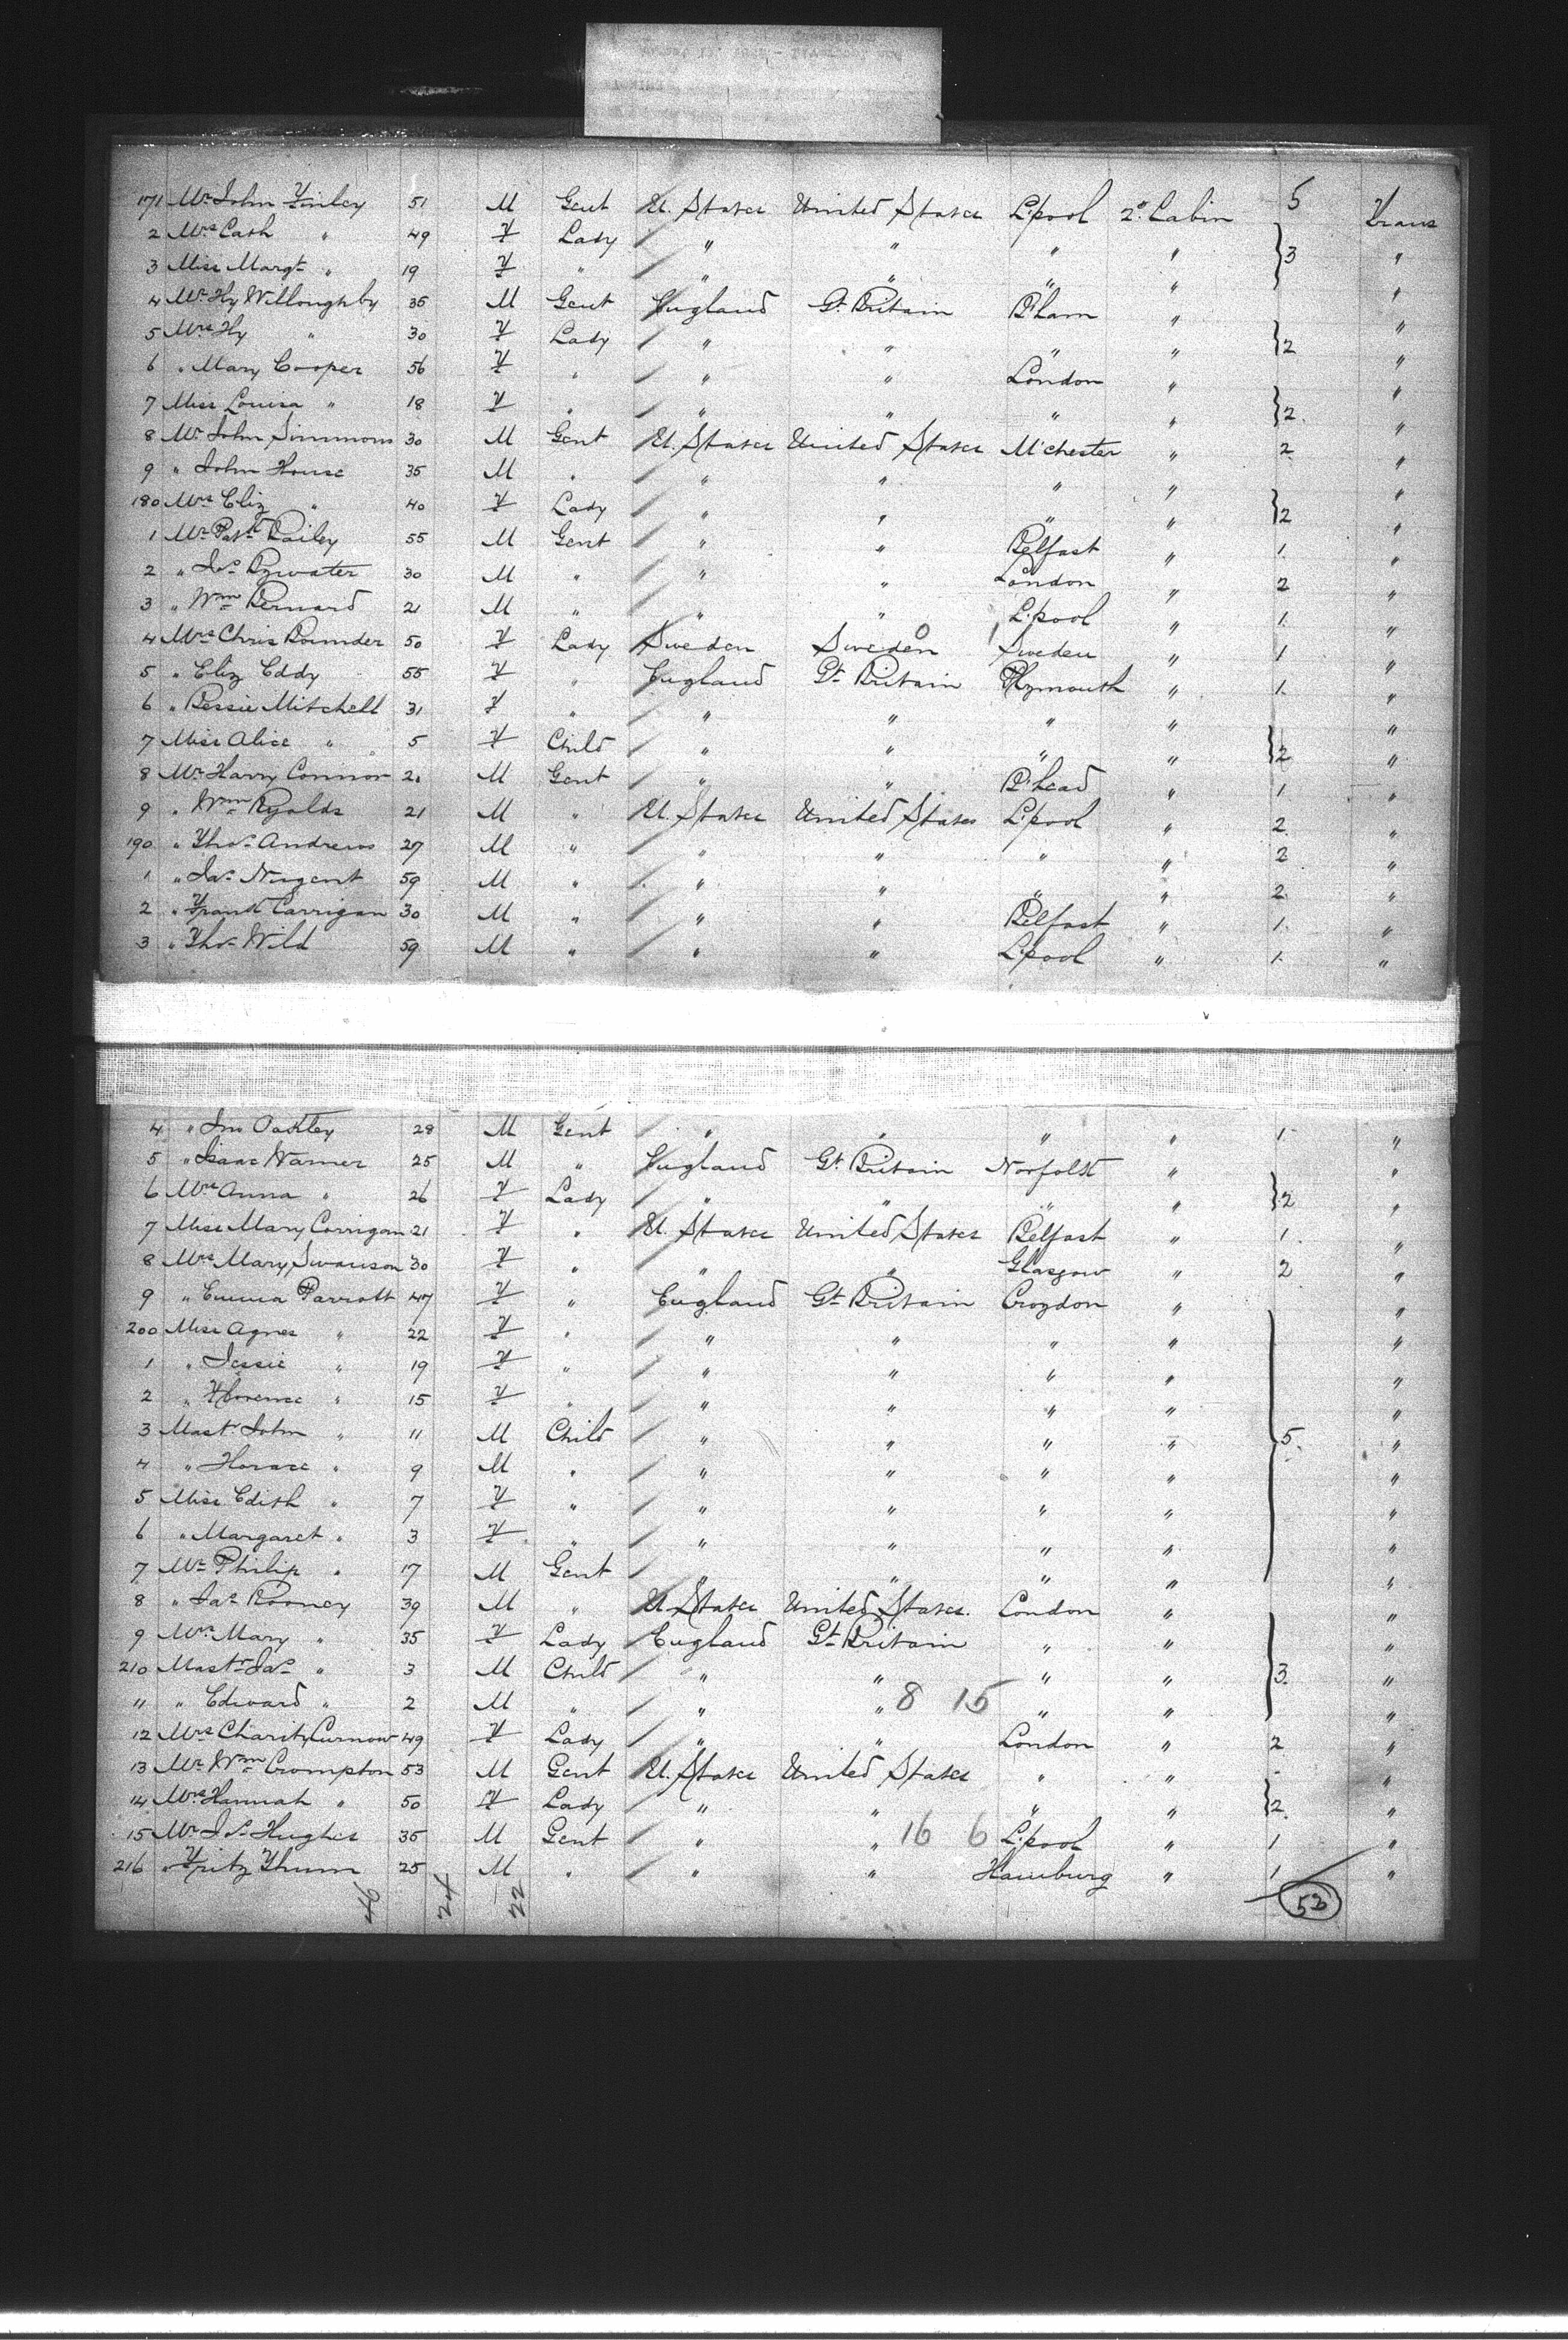 171 Mr John Finley 51 M Gent U. States United States L'pool 2d Cabin 5 Trans
2 Mrs Cath " 49 F Lady " " " " "
3 Miss Margt " 19 F " " " " " 3 "
4 Mr Hy Willoughby 35 M Gent England Gt Britain B'ham " "
5 Mrs Hy " 30 F Lady " " " " 2 "
6 " Mary Cooper 56 F " " " London " "
7 Miss Louisa " 18 F " " " " " 2 "
8 Mr John Simmons 30 M Gent U. States United States M'chester " 2 "
9 " John House 35 M " " " " " "
180 Mrs Eliz " 40 F Lady " " " " 2 "
1 Mr Patk Bailey 55 M Gent " " Belfast " 1 "
2 " Jno Bywater 30 M " " " London " 2 "
3 " Wm Bernard 21 M " " " L'pool " 1 "
4 Mrs Chris Bounder 50 F Lady Sweden Sweden Sweden " 1 "
5 " Eliz Eddy 55 F " England Gt Britain Plymouth " 1 "
6 " Bessie Mitchell 31 F " " " " " "
7 Miss Alice " 5 F Child " " " " 2 "
8 Mr Harry Connor M Gent " " B'head " 1 "
9 " Wm Ryalds 21 M " U. States United States L'pool " 2 "
190 " Thos Andrews 27 M " " " " " 2 "
1 " Jas Nugent 59 M " " " " " 2 "
2 " Frank Carrigan 30 M " " " Belfast " 1 "
3 " Thos Wild 59 M " " " L'pool " 1 "
4 " Jno Oakley 28 M Gent " " " " 1 "
5 " Isaac Warner 25 M " England Gt Britain Norfolk " "
6 Mrs Anna " 26 F Lady " " " " 2 "
7 Miss Mary Corrigan 21 F " U. States United States Belfast " 1 "
8 Mrs Mary Swanson 30 F " " " Glasgow " 2 "
9 " Emma Parrott 47 F " England Gt Britain Croydon " "
200 Miss Agnes " 22 F " " " " " "
1 " Jessie " 19 F " " " " " "
2 " Florence " 15 F " " " " " "
3 Mast John " 11 M Child " " " " 5 "
4 " Horace " 9 M " " " " " "
5 Miss Edith " 7 F " " " " " "
6 " Margaret " 3 F " " " " " "
7 Mr Philip " 17 M Gent " " " " "
8 " Jas Rooney 39 M " U. States United States London " "
9 Mrs Mary " 35 F Lady England Gt Britain " " "
210 Mast Jas " 3 M Child " " " " 3 "
11 " Edward " 2 M " " " 8 15 " " "
12 Mrs Charity Curnow 49 F Lady " " London " 2 "
13 Mr Wm Crompton 53 M Gent U. States United States " " "
14 Mrs Hannah " 50 F Lady " " " " 2 "
15 Mr Jno Hughes 35 M Gent " " 16 6 L'pool " 1 "
216 " Fritz Thum 25 M " " " Hamburg " 1 "
46 24 22 53